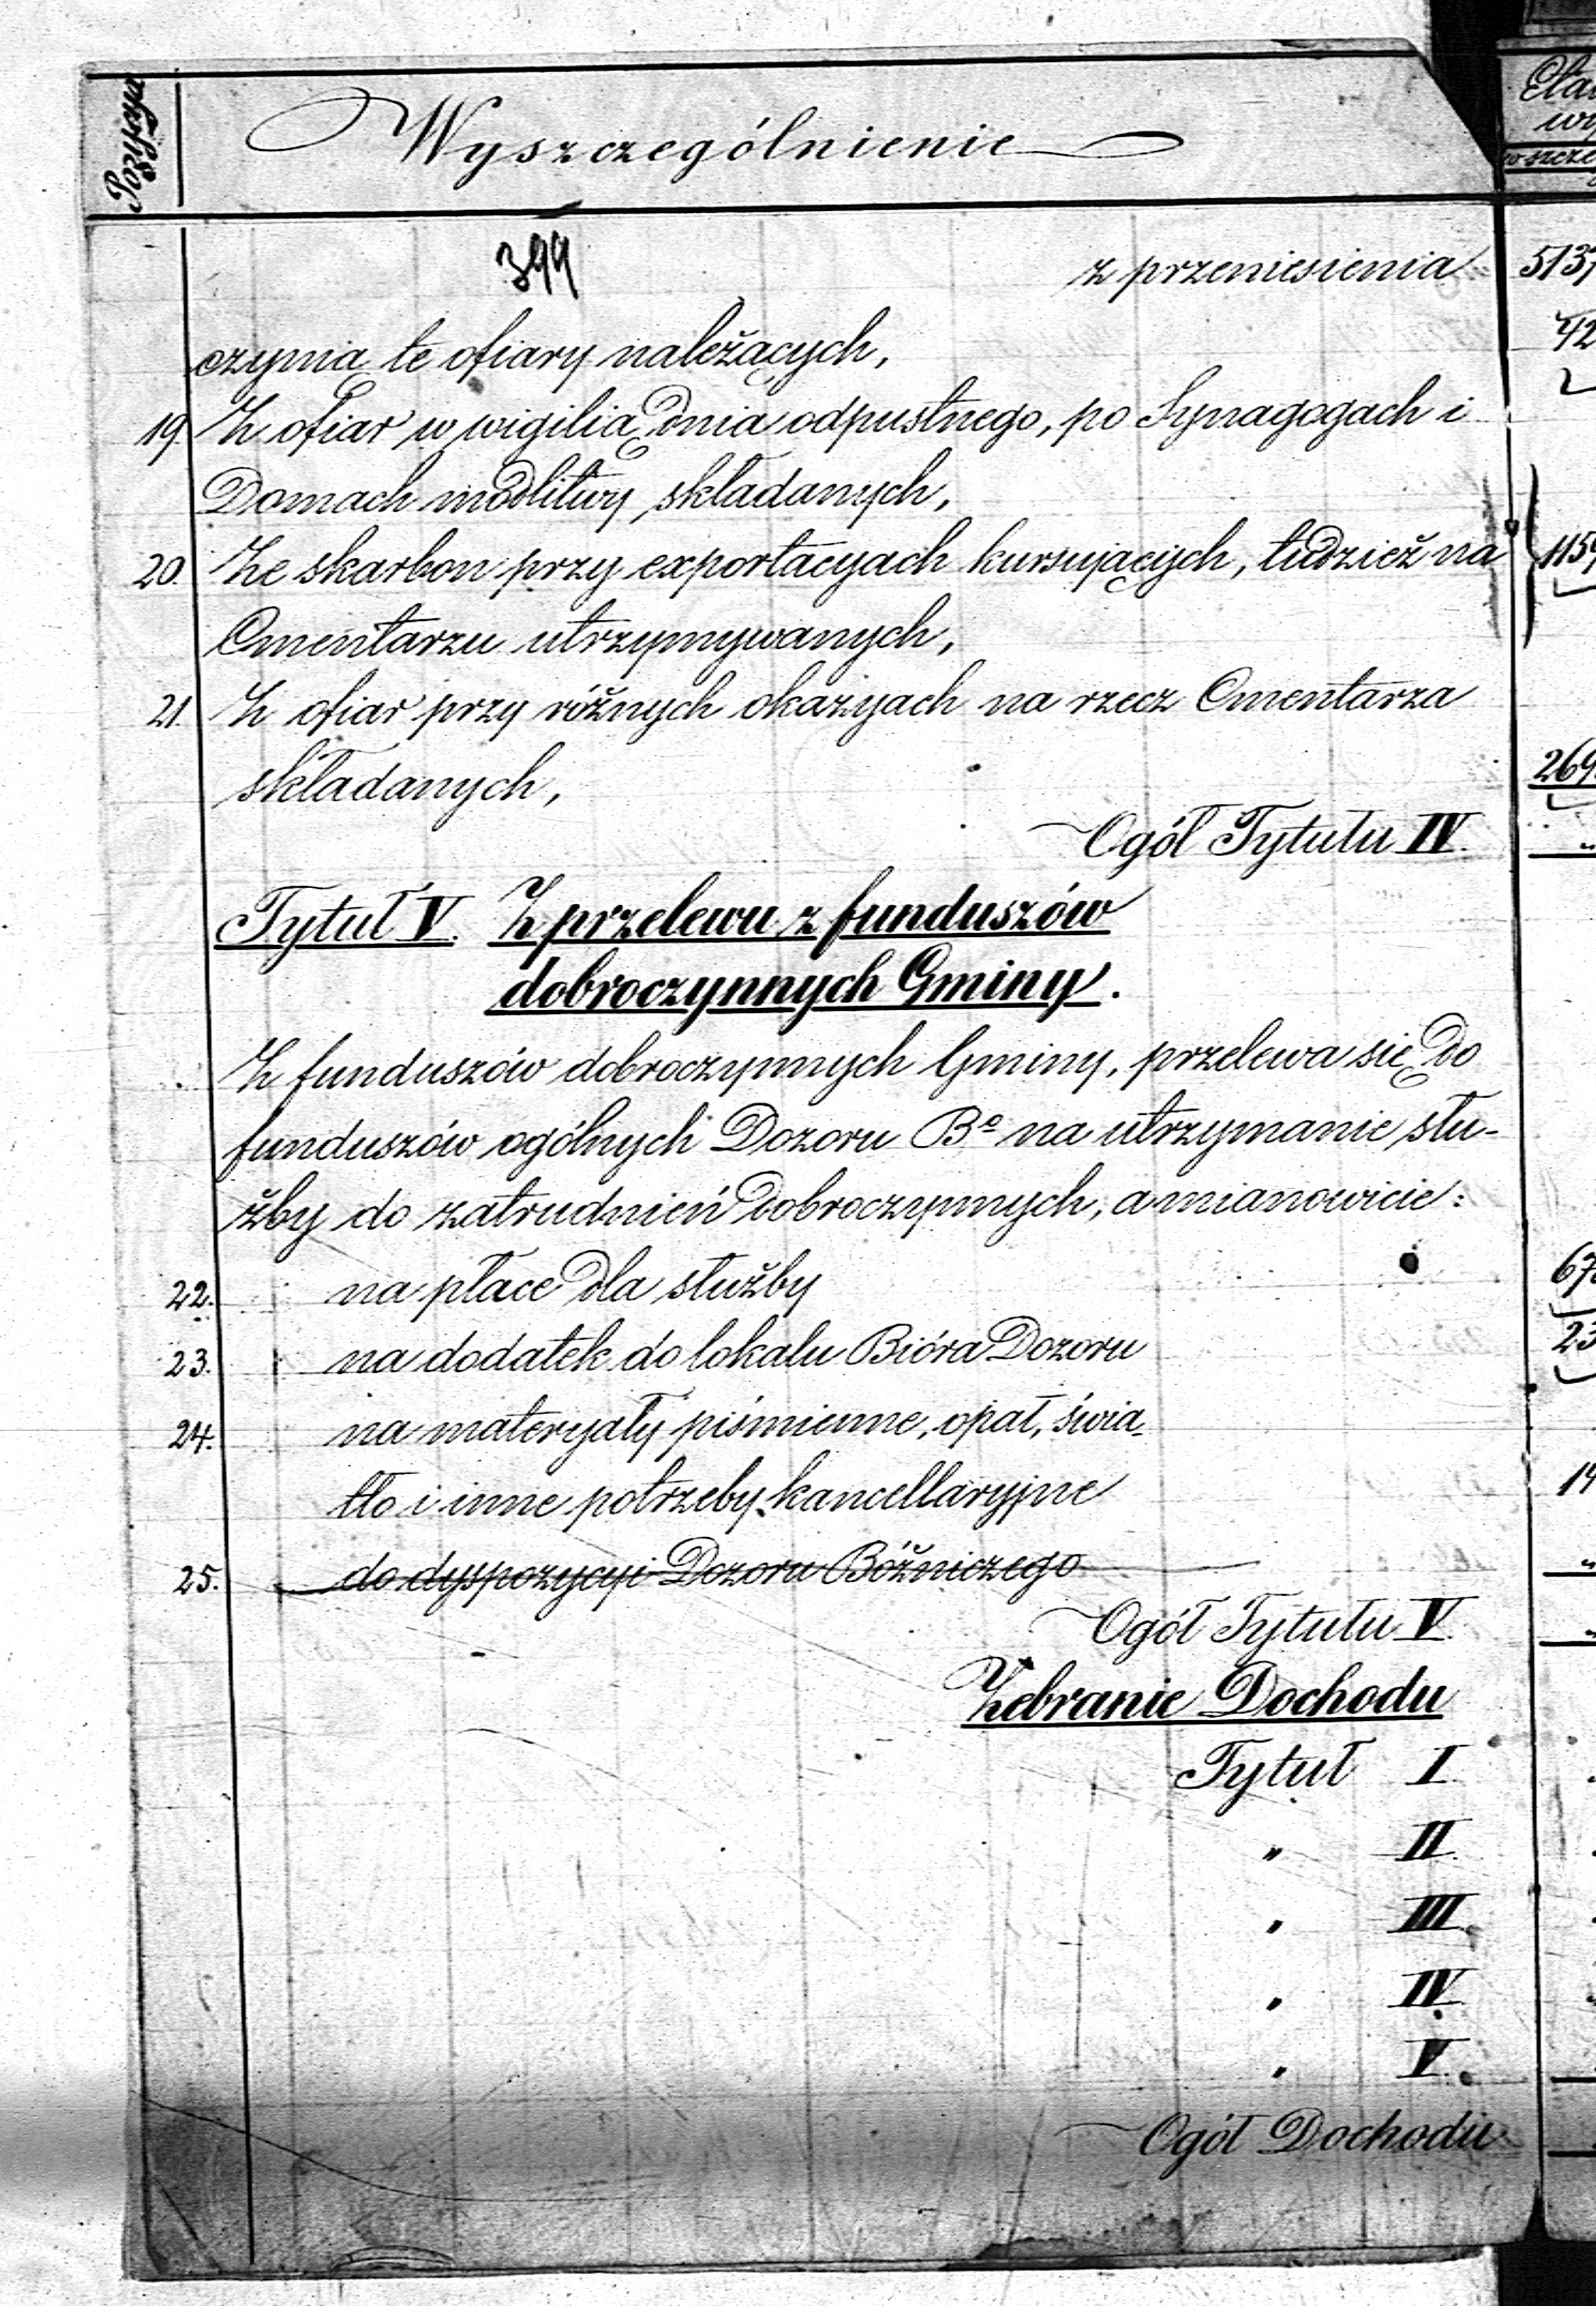 Pozycya
Wyszczególnienie
399
z przeniesienia 513
czynią te ofiary należących, 42
19. Z ofiar w wigilią dnia odpustnego, po Synagogach i
Domach modlitwy, składanych,
20. Ze skarbon przy exportacyach kursujących, tudzież na 115
Cmentarzu utrzymywanych,
21. Z ofiar przy różnych okazyach na rzecz Cmentarza
składanych, 269
Ogół Tytułu IV.
Tytuł V. Z przelewu z funduszów
dobroczynnych Gminy.
Z funduszów dobroczynnych Gminy, przelewa się do
funduszów ogólnych Dozoru Bo na utrzymanie słu-
żby do zatrudnień dobroczynnych, a mianowicie:
22. na płace dla służby 67
23. na dodatek do lokalu Bióra Dozoru 23
24. na materyały piśmienne, opał, świa-
tło i inne potrzeby kancellaryjne 19
25. do dyspozycyi Dozoru Bóżniczego
Ogół Tytułu V.
Zebranie Dochodu
Tytuł I
" II.
" III.
" IV.
" V.
Ogół Dochodu